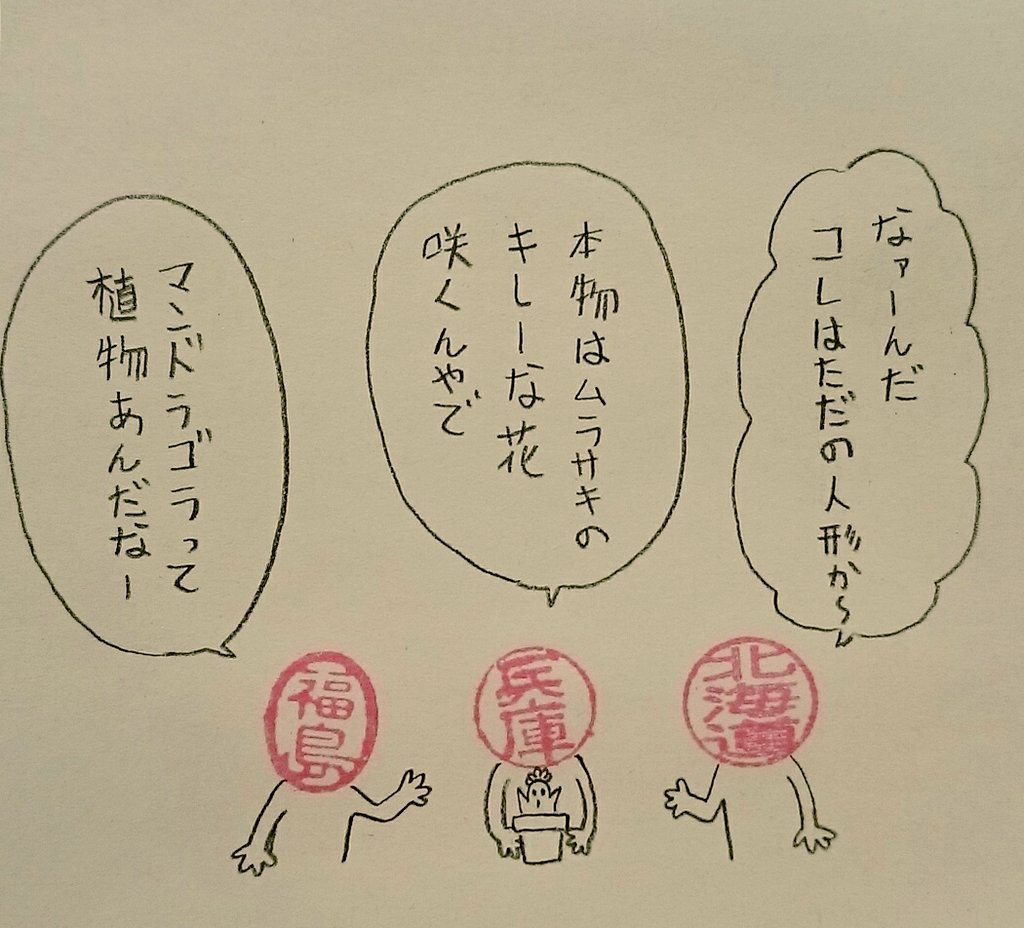 なァーんだ
コレはただの人形か〜
本物はムラサキの
キレーな花
咲くんやで
マンドラゴラって
植物あんだなー
北海道
兵庫
福島